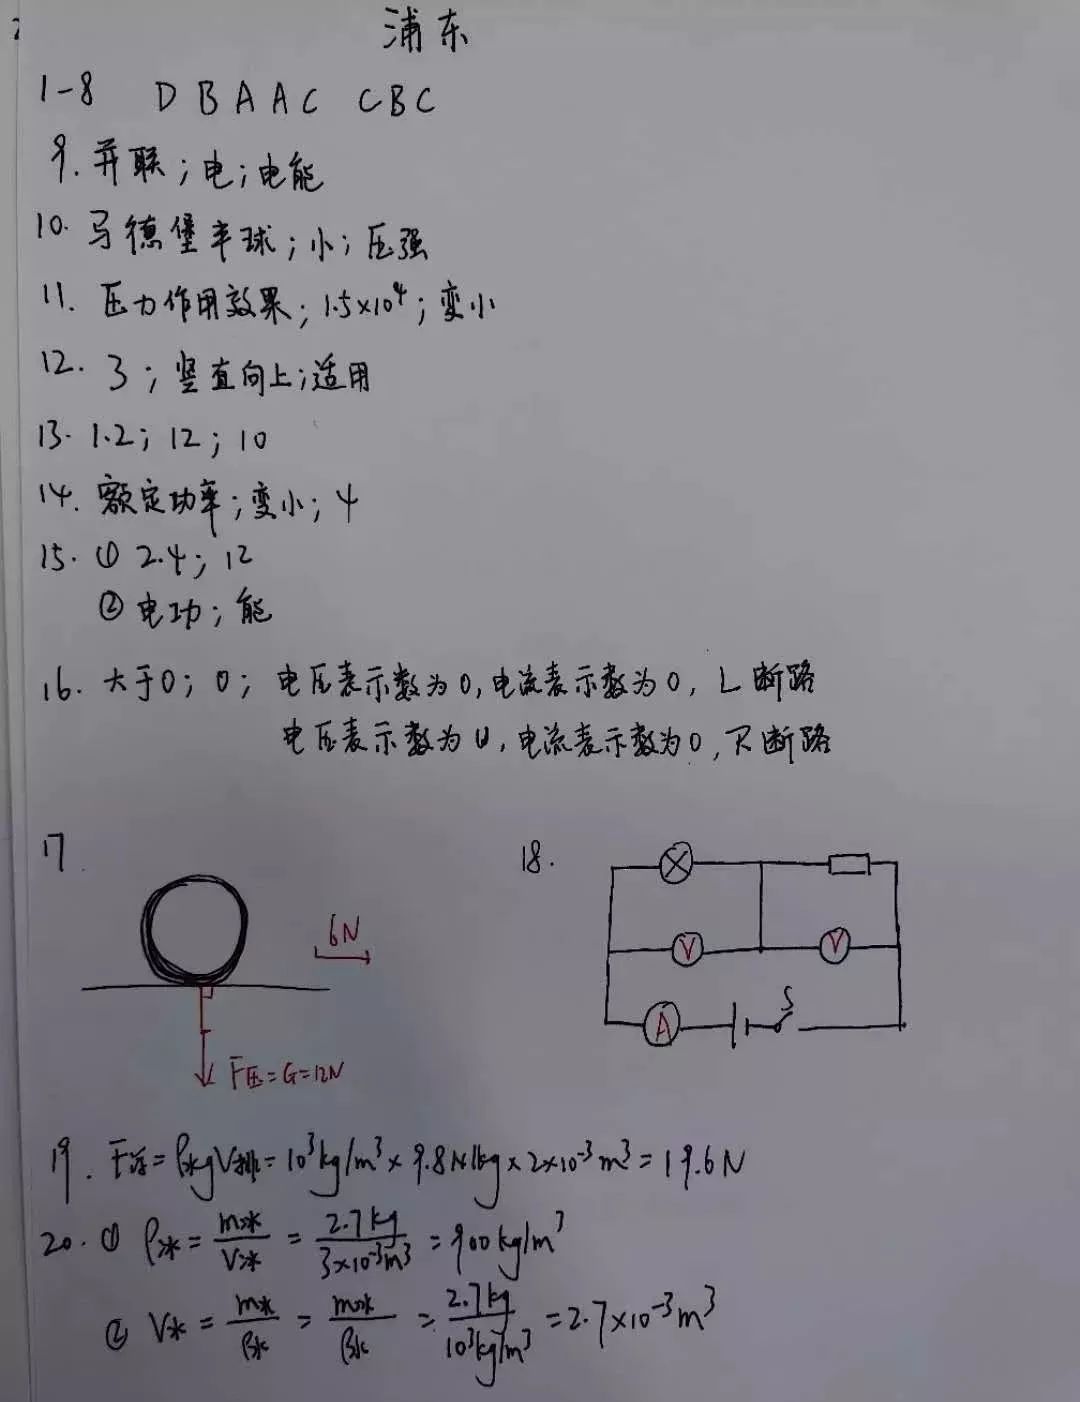 浦东
1-8 DBAAC CBC
9. 并联；电；电能
10. 马德堡半球；小；压强
11. 压力作用效果；1.5×10⁴；变小
12. 3；竖直向上；适用
13. 1.2；12；10
14. 额定功率；变小；4
15. ① 2.4；12
② 电功；能
16. 大于0；0；电压表示数为0，电流表示数为0，L断路
电压表示数为U，电流表示数为0，R断路
17
18.
6N
V V
S
A
F压=G=12N
19. F浮=ρ水gV排=10³kg/m³×9.8N/kg×2×10⁻³m³=19.6N
20. ① ρ冰=m冰/V冰=2.7kg/3×10⁻³m³=900kg/m³
② V水=m水/ρ水=m冰/ρ水=2.7kg/10³kg/m³=2.7×10⁻³m³